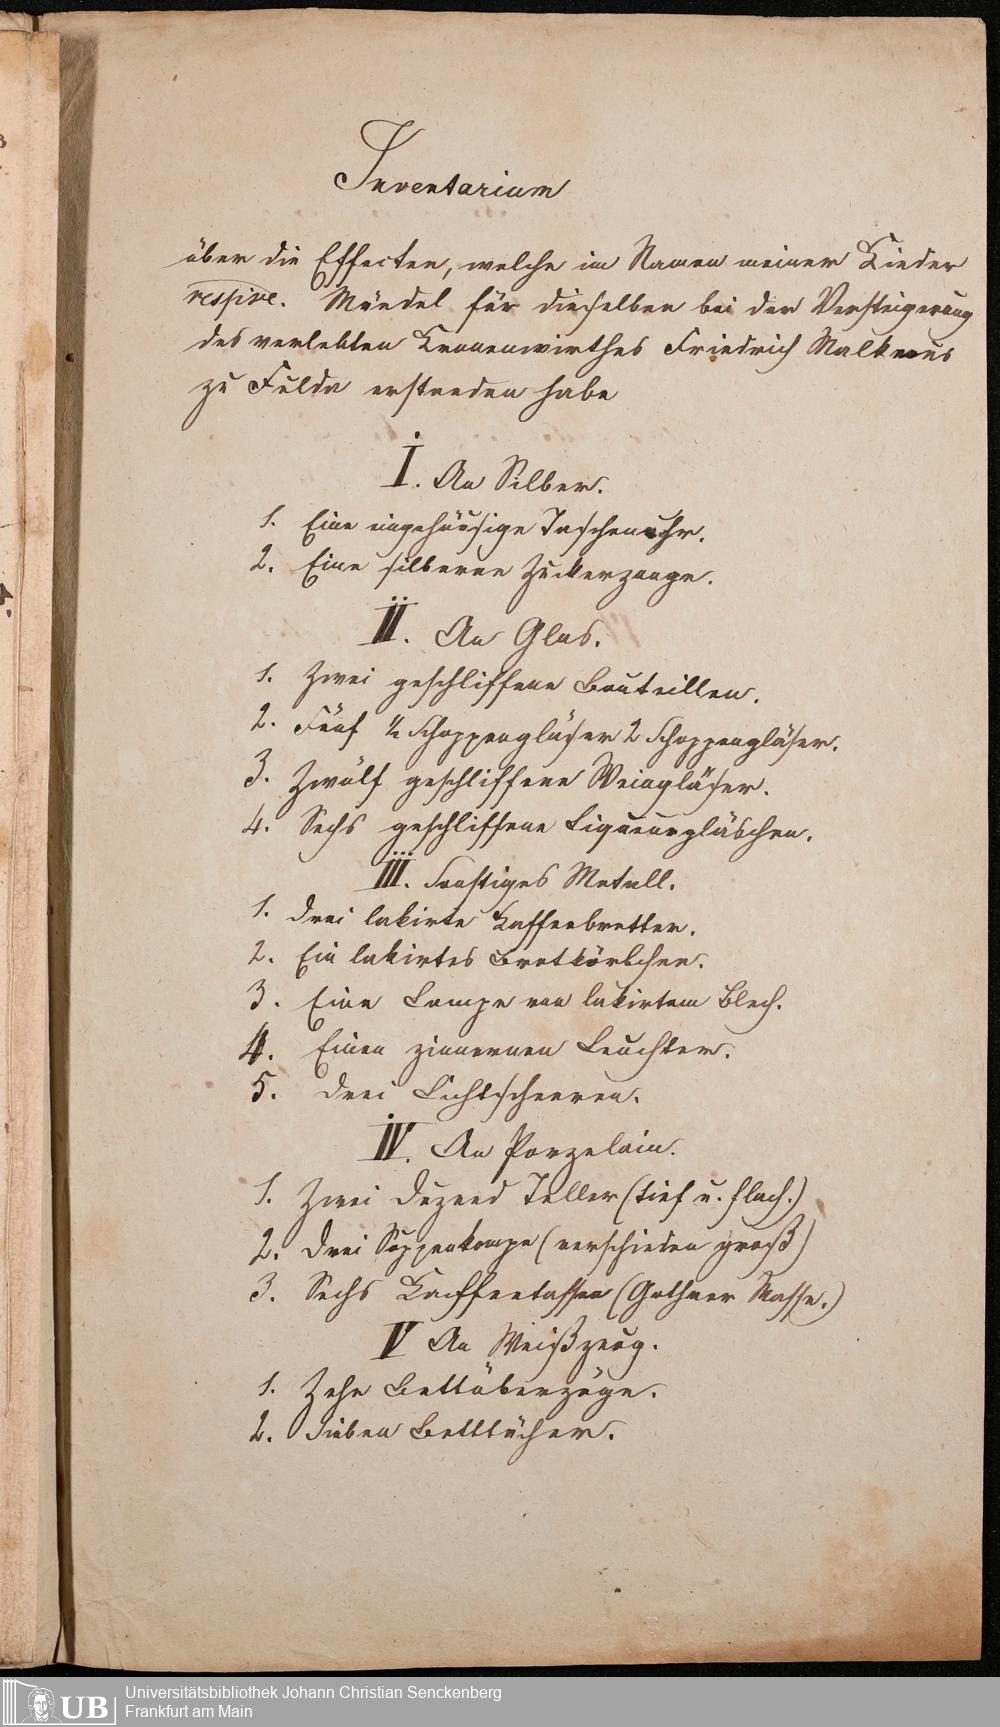 Inventarium
über die Effecten, welche im Namen meiner Kinder
respive. Mündel für dieselben bei der Versteigerung
des verlebten Kronenwirthes Friedrich Malkmus
zu Fulda erstanden habe
I. An Silber.
1. Eine eingehäusige Taschenuhr.
2. Eine silberne Zuckerzange.
II. An Glas.
1. Zwei geschliffene Bouteillen.
2. Fünf ½ Schoppengläser 2 Schoppengläser.
3. Zwölf geschliffene Weingläser.
4. Sechs geschliffene Liqueurgläschen.
III. Sonstiges Metall.
1. Drei lakirte Kaffeebretter.
2. Ein lakirtes Brotkörbchen.
3. Eine Lampe von lakirtem Blech.
4. Einen zinnernen Leuchter.
5. Drei Lichtscheeren.
IV. An Porzelain.
1. Zwei Duzend Teller (tief u. flach.)
2. Drei Suppenkompe (verschieden groß)
3. Sechs Kaffeetassen (Gothaer Masse.)
V An Weißzeug.
1. Zehn Bettüberzüge.
2. Sieben Betttücher.
UB Universitätsbibliothek Johann Christian Senckenberg
Frankfurt am Main